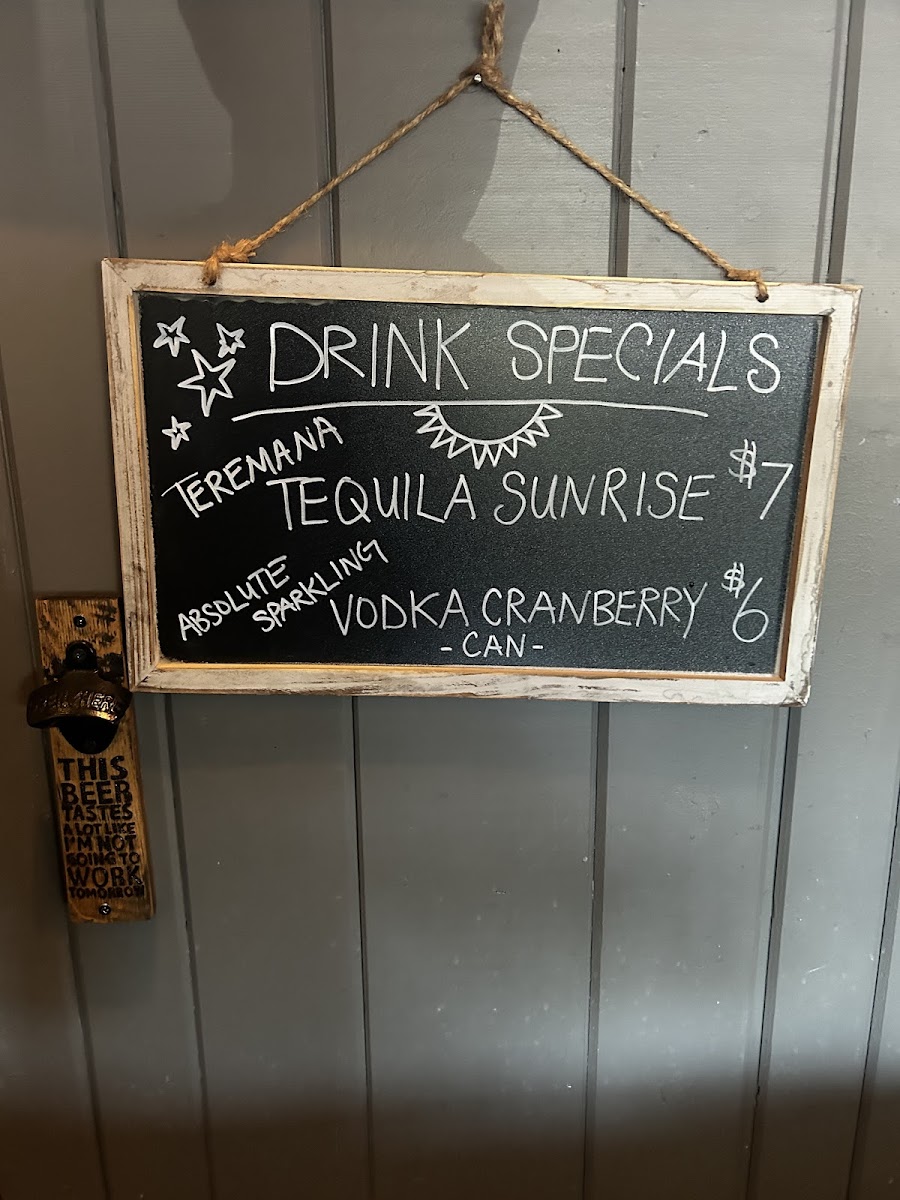 DRINK SPECIALS
TEREMANA
TEQUILA SUNRISE $7
ABSOLUTE
SPARKLING
VODKA CRANBERRY $6
- CAN -
THIS
BEER
TASTES
A LOT LIKE
I'M NOT
GOING TO
WORK
TOMORROW